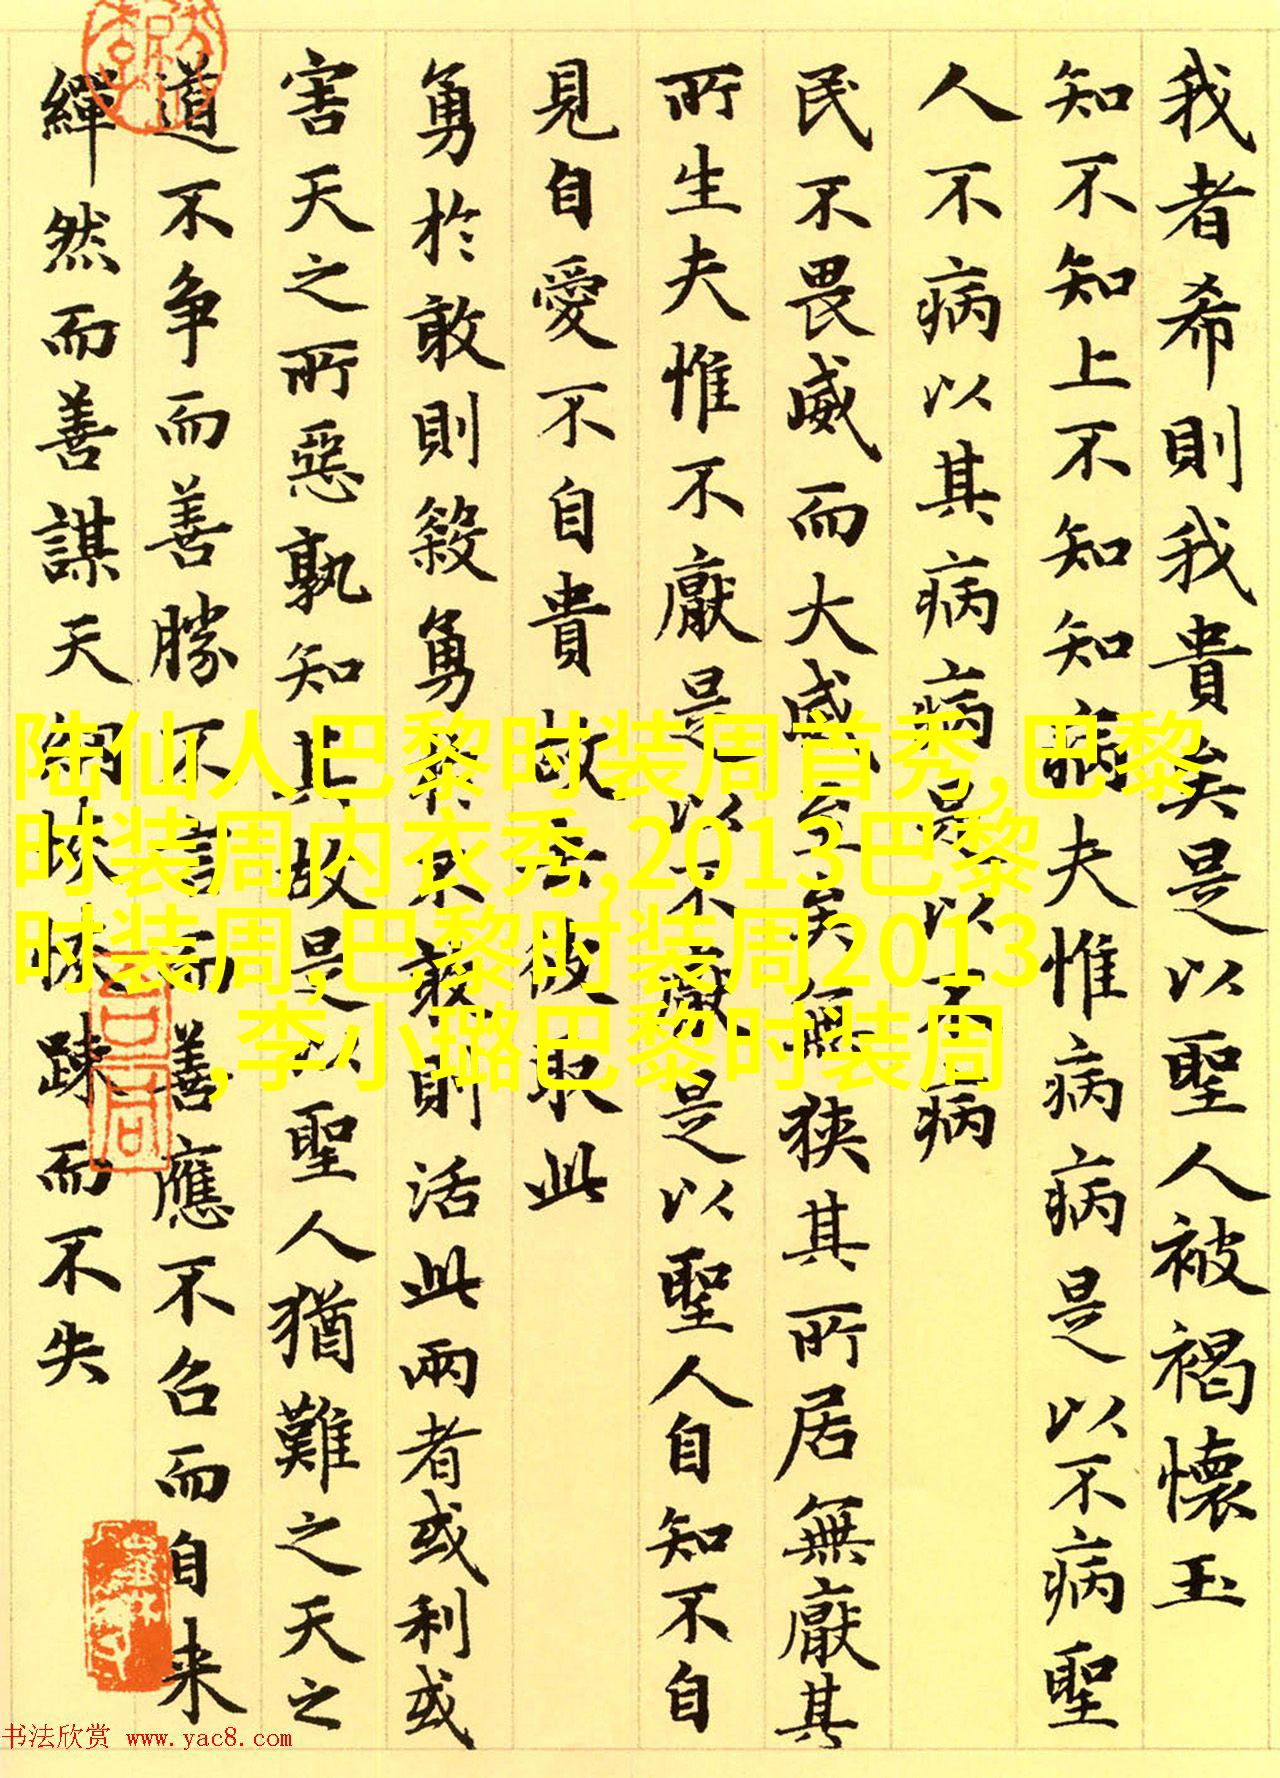 我者希則我貴矣是以聖人被褐懷玉
知不知上不知知病夫惟病病是以不病聖
人不病以其病病是以不病
民不畏威而大威至矣無狹其所居無厭其
所生夫惟不厭是以不厭是以聖人自知不自
見自愛不自貴故去彼取此
勇於敢則殺勇於不敢則活此兩者或利或
害天之所惡孰知其故是以聖人猶難之天之
道不争而善勝不言而善應不召而自来
繟然而善謀天網恢恢踈而不失
陆仙人巴黎时装周首秀,巴黎
时装周内衣秀,2013巴黎
时装周,巴黎时装周2013
,李小璐巴黎时装周
书法欣赏 www.yac8.com